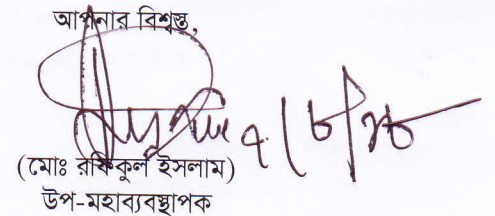 আপনার বিশ্বস্ত,
(মোঃ রফিকুল ইসলাম)
উপ-মহাব্যবস্থাপক